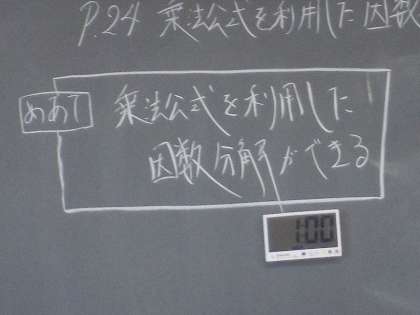 P.24 乗法公式を利用した因数
めあて
乗法公式を利用した
因数分解ができる
1:00